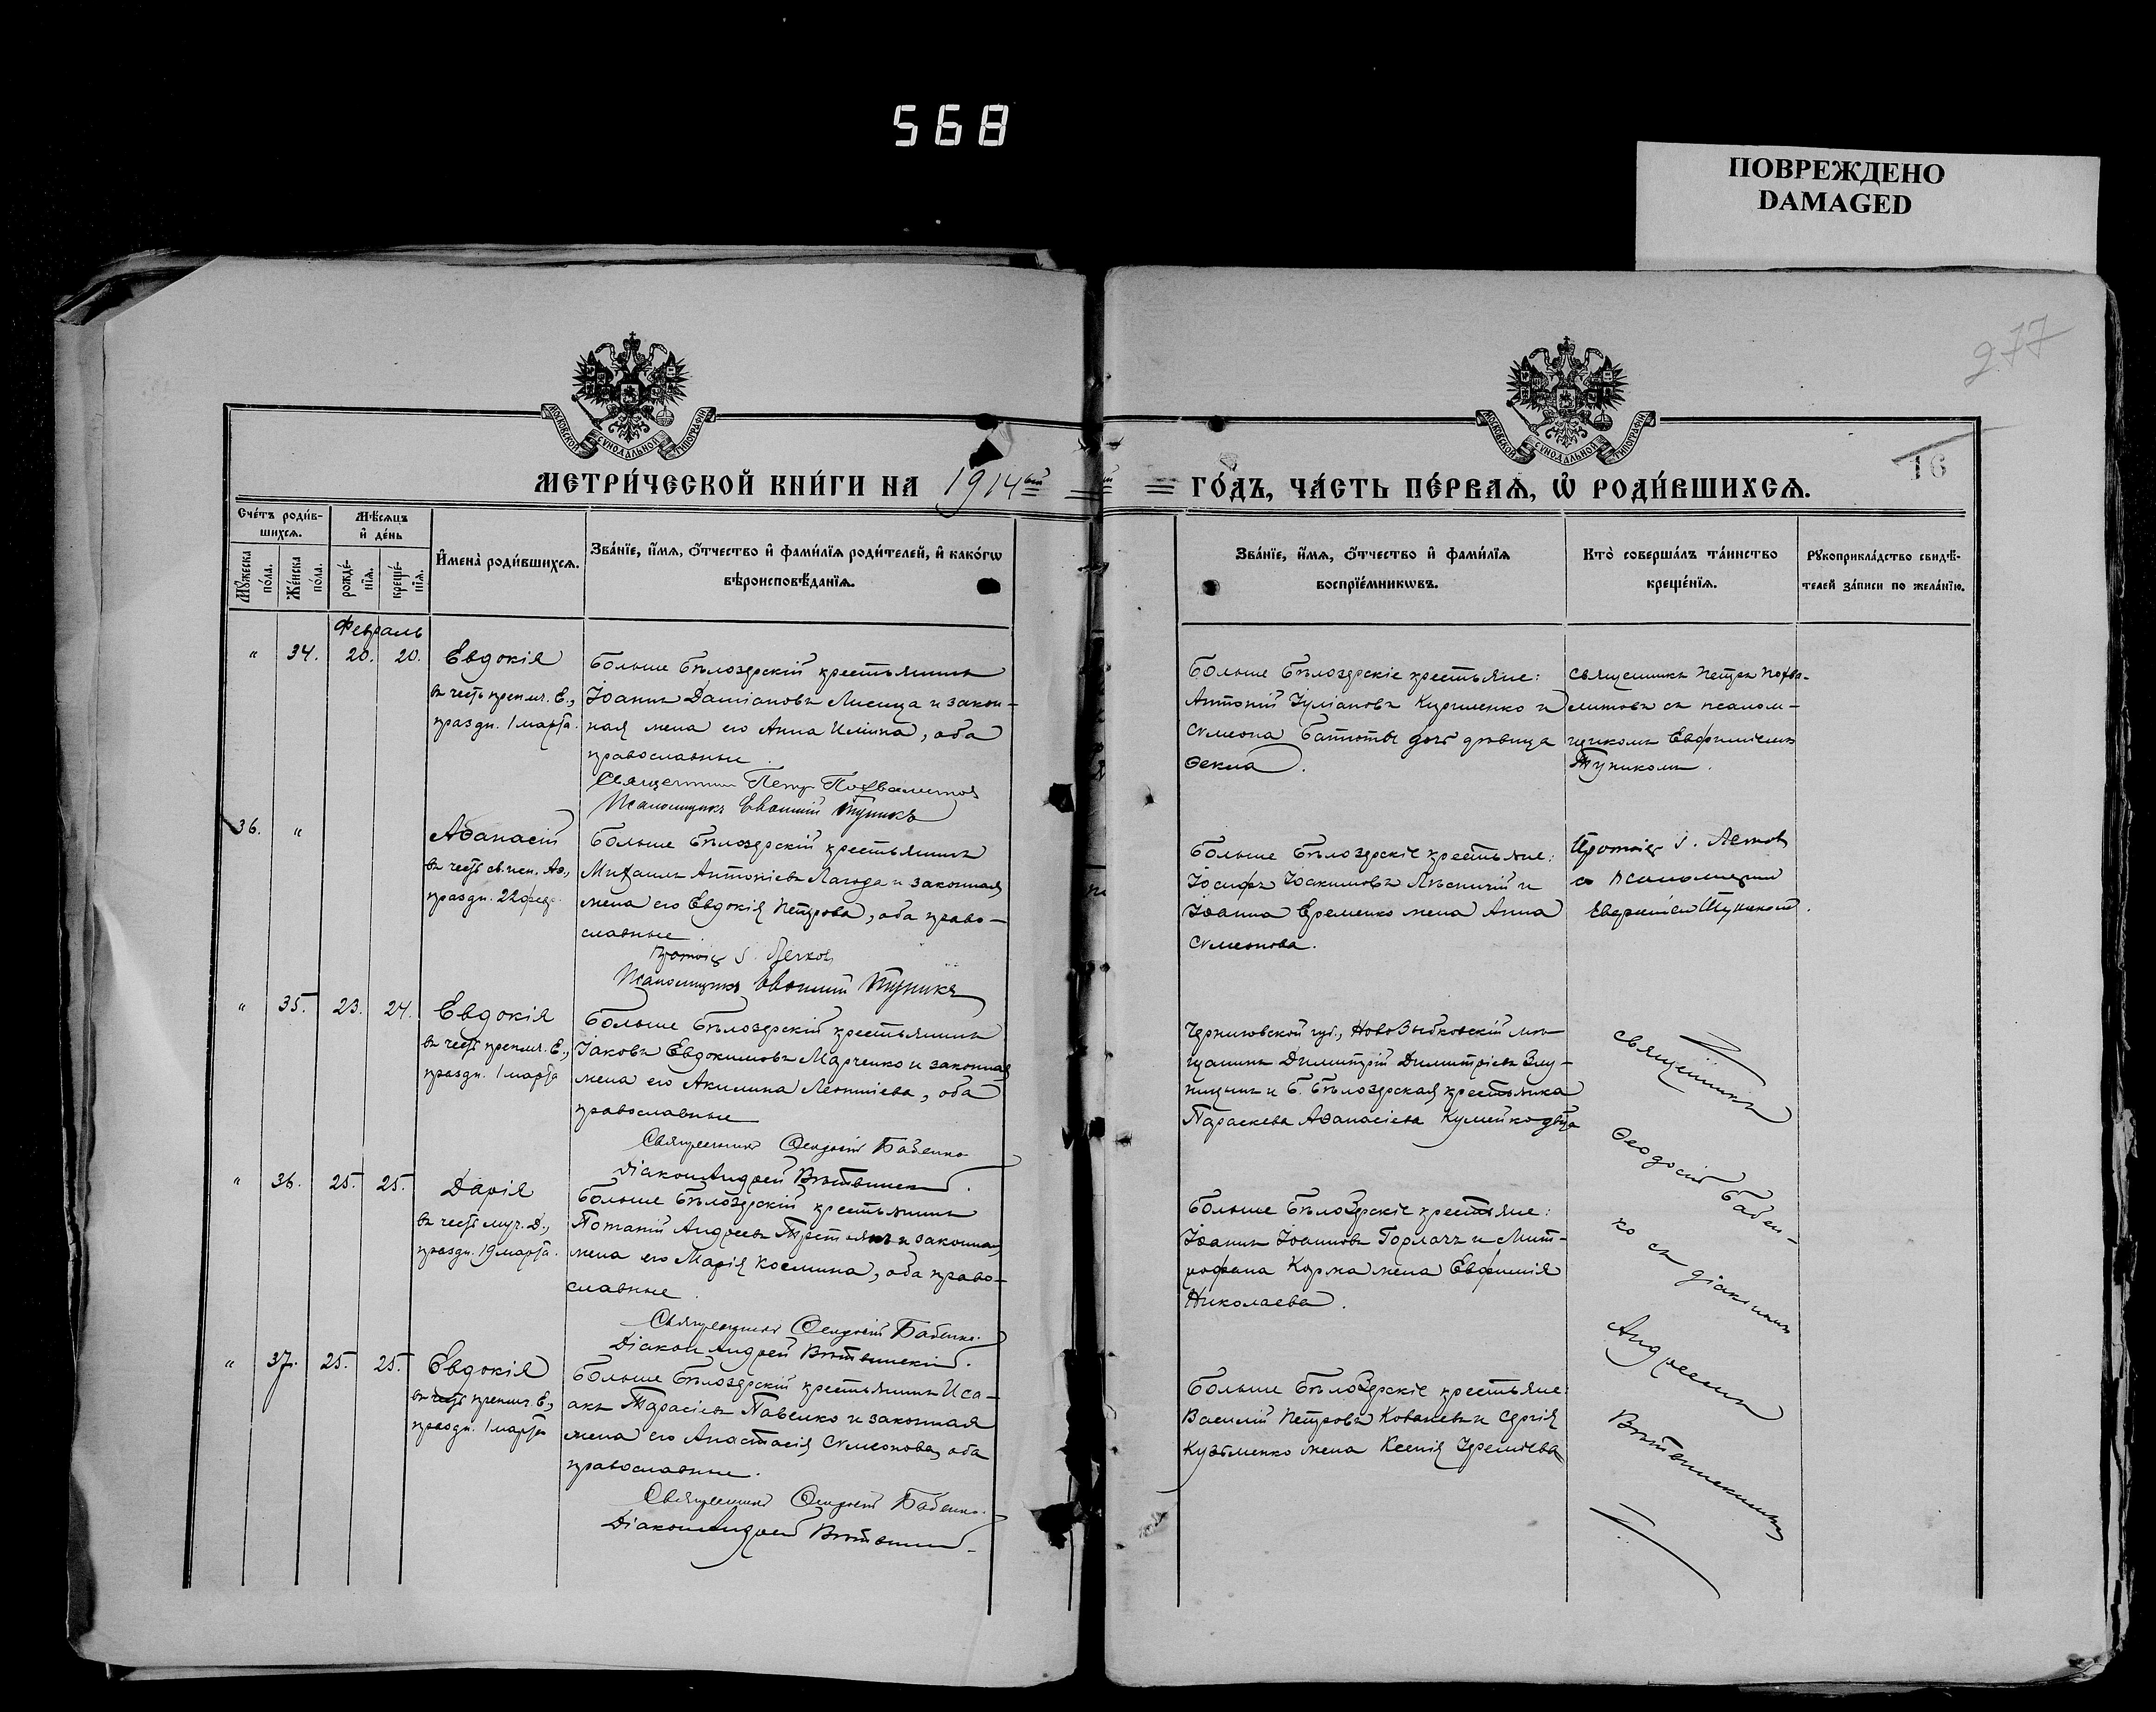 568
ПОВРЕЖДЕНО
DAMAGED
277
16
МОСКОВСКОЙ СѴНОДАЛЬНОЙ ТИПОГРАФІИ
МОСКОВСКОЙ СѴНОДАЛЬНОЙ ТИПОГРАФІИ
МЕТРИ́ЧЕСКОЙ КНИ́ГИ НА 1914ый
ГО́ДЪ, ЧА́СТЬ ПЕ́РВАѦ, Ѡ҆ РОДИ́ВШИХСѦ.
Сче́тъ роди́в-
шихсѧ.
Мꙋ́жеска по́ла.
Же́нска по́ла.
Мѣ́сѧцъ и҆ де́нь
рожде́-нїѧ.
креще́-нїѧ.
И҆мена̀ роди́вшихсѧ.
Зва́нїе, и҆́мѧ, ѻ҆́тчество и҆ фами́лїѧ роди́телей, и҆ како́гѡ
вѣроисповѣ́данїѧ.
Зва́нїе, и҆́мѧ, ѻ҆́тчество и҆ фами́лїѧ
воспрїе́мникѡвъ.
Кто̀ соверша́лъ та́инство
креще́нїѧ.
Рꙋкоприкла́дство свидѣ́-
телей за́писи по жела́нїю.
Февраль
" 34. 20. 20. Евдокія
въ честь препмч. Е.,
праздн. 1 марта.
Больше Бѣлозерскій крестьянинъ
Іоаннъ Даміановъ Лисица и закон-
ная жена его Анна Иліина, оба
православные.
Священникъ Петръ Похвалитовъ
Псаломщикъ Евфимій Тупикъ
Больше Бѣлозерскіе крестьяне:
Антоній Іуліановъ Куриленко и
Сѵмеона дочь дѣвица
Ѳекла.
Священникъ Петръ Похва-
литовъ съ псалом-
щикомъ Евфиміемъ
Тупикомъ.
36. " Аѳанасій
въ честь св. исп. Аѳ.,
праздн. 22 февр.
Больше Бѣлозерскій крестьянинъ
Михаилъ Антоніевъ Лагода и законная
жена его Евдокія Петрова, оба право-
славные.
Псаломщикъ Евфимій Тупикъ
Больше Бѣлозерскіе крестьяне:
Іосифъ Іоакимовъ Лѣсничій и
Іоанна Еременко жена Анна
Сѵмеонова.
съ псаломщикомъ
Евфиміемъ Тупикомъ.
" 35. 23. 24. Евдокія
въ честь препмч. Е.,
праздн. 1 марта
Больше Бѣлозерскій крестьянинъ
Іаковъ Евдокимовъ Марченко и законная
жена его Акилина Леонтіева, оба
православные
Священникъ Ѳеодосій Бабенко
Діаконъ Андрей Вѣтвинскій.
Черниговской губ., НовоЗыбковскій мѣ-
щанинъ Димитрій Димитріевъ
и Б. Бѣлозерская крестьянка
Параскева Аѳанасіева Кумейко
" 36. 25. 25. Дарія
въ честь муч. Д.,
праздн. 19 марта.
Больше Бѣлозерскій крестьянинъ
Потапій Андреевъ Третьякъ и законная
жена его Марія Косьмина, оба право-
славные.
Священникъ Ѳеодосій Бабенко.
Діаконъ Андрей Вѣтвинскій.
Больше БѣлоЗерскіе крестьяне:
Іоаннъ Іоанновъ Горлачъ и Мит-
рофана Коржа жена Евфимія
Николаева.
" 37. 25. 25. Евдокія
въ честь препмч. Е.,
праздн. 1 марта
Больше Бѣлозерскій крестьянинъ Иса-
акъ Тарасіевъ Павленко и законная
жена его Анастасія Сѵмеонова, оба
православные.
Священникъ Ѳеодосій Бабенко.
Діаконъ Андрей Вѣтвинскій.
Больше БѣлоЗерскіе крестьяне:
Василій Петровъ Ковалевъ и Сергія
Кузьменко жена Ксенія
Священникъ
Ѳеодосій Бабен-
ко съ діакономъ
Андреемъ
Вѣтвинскимъ